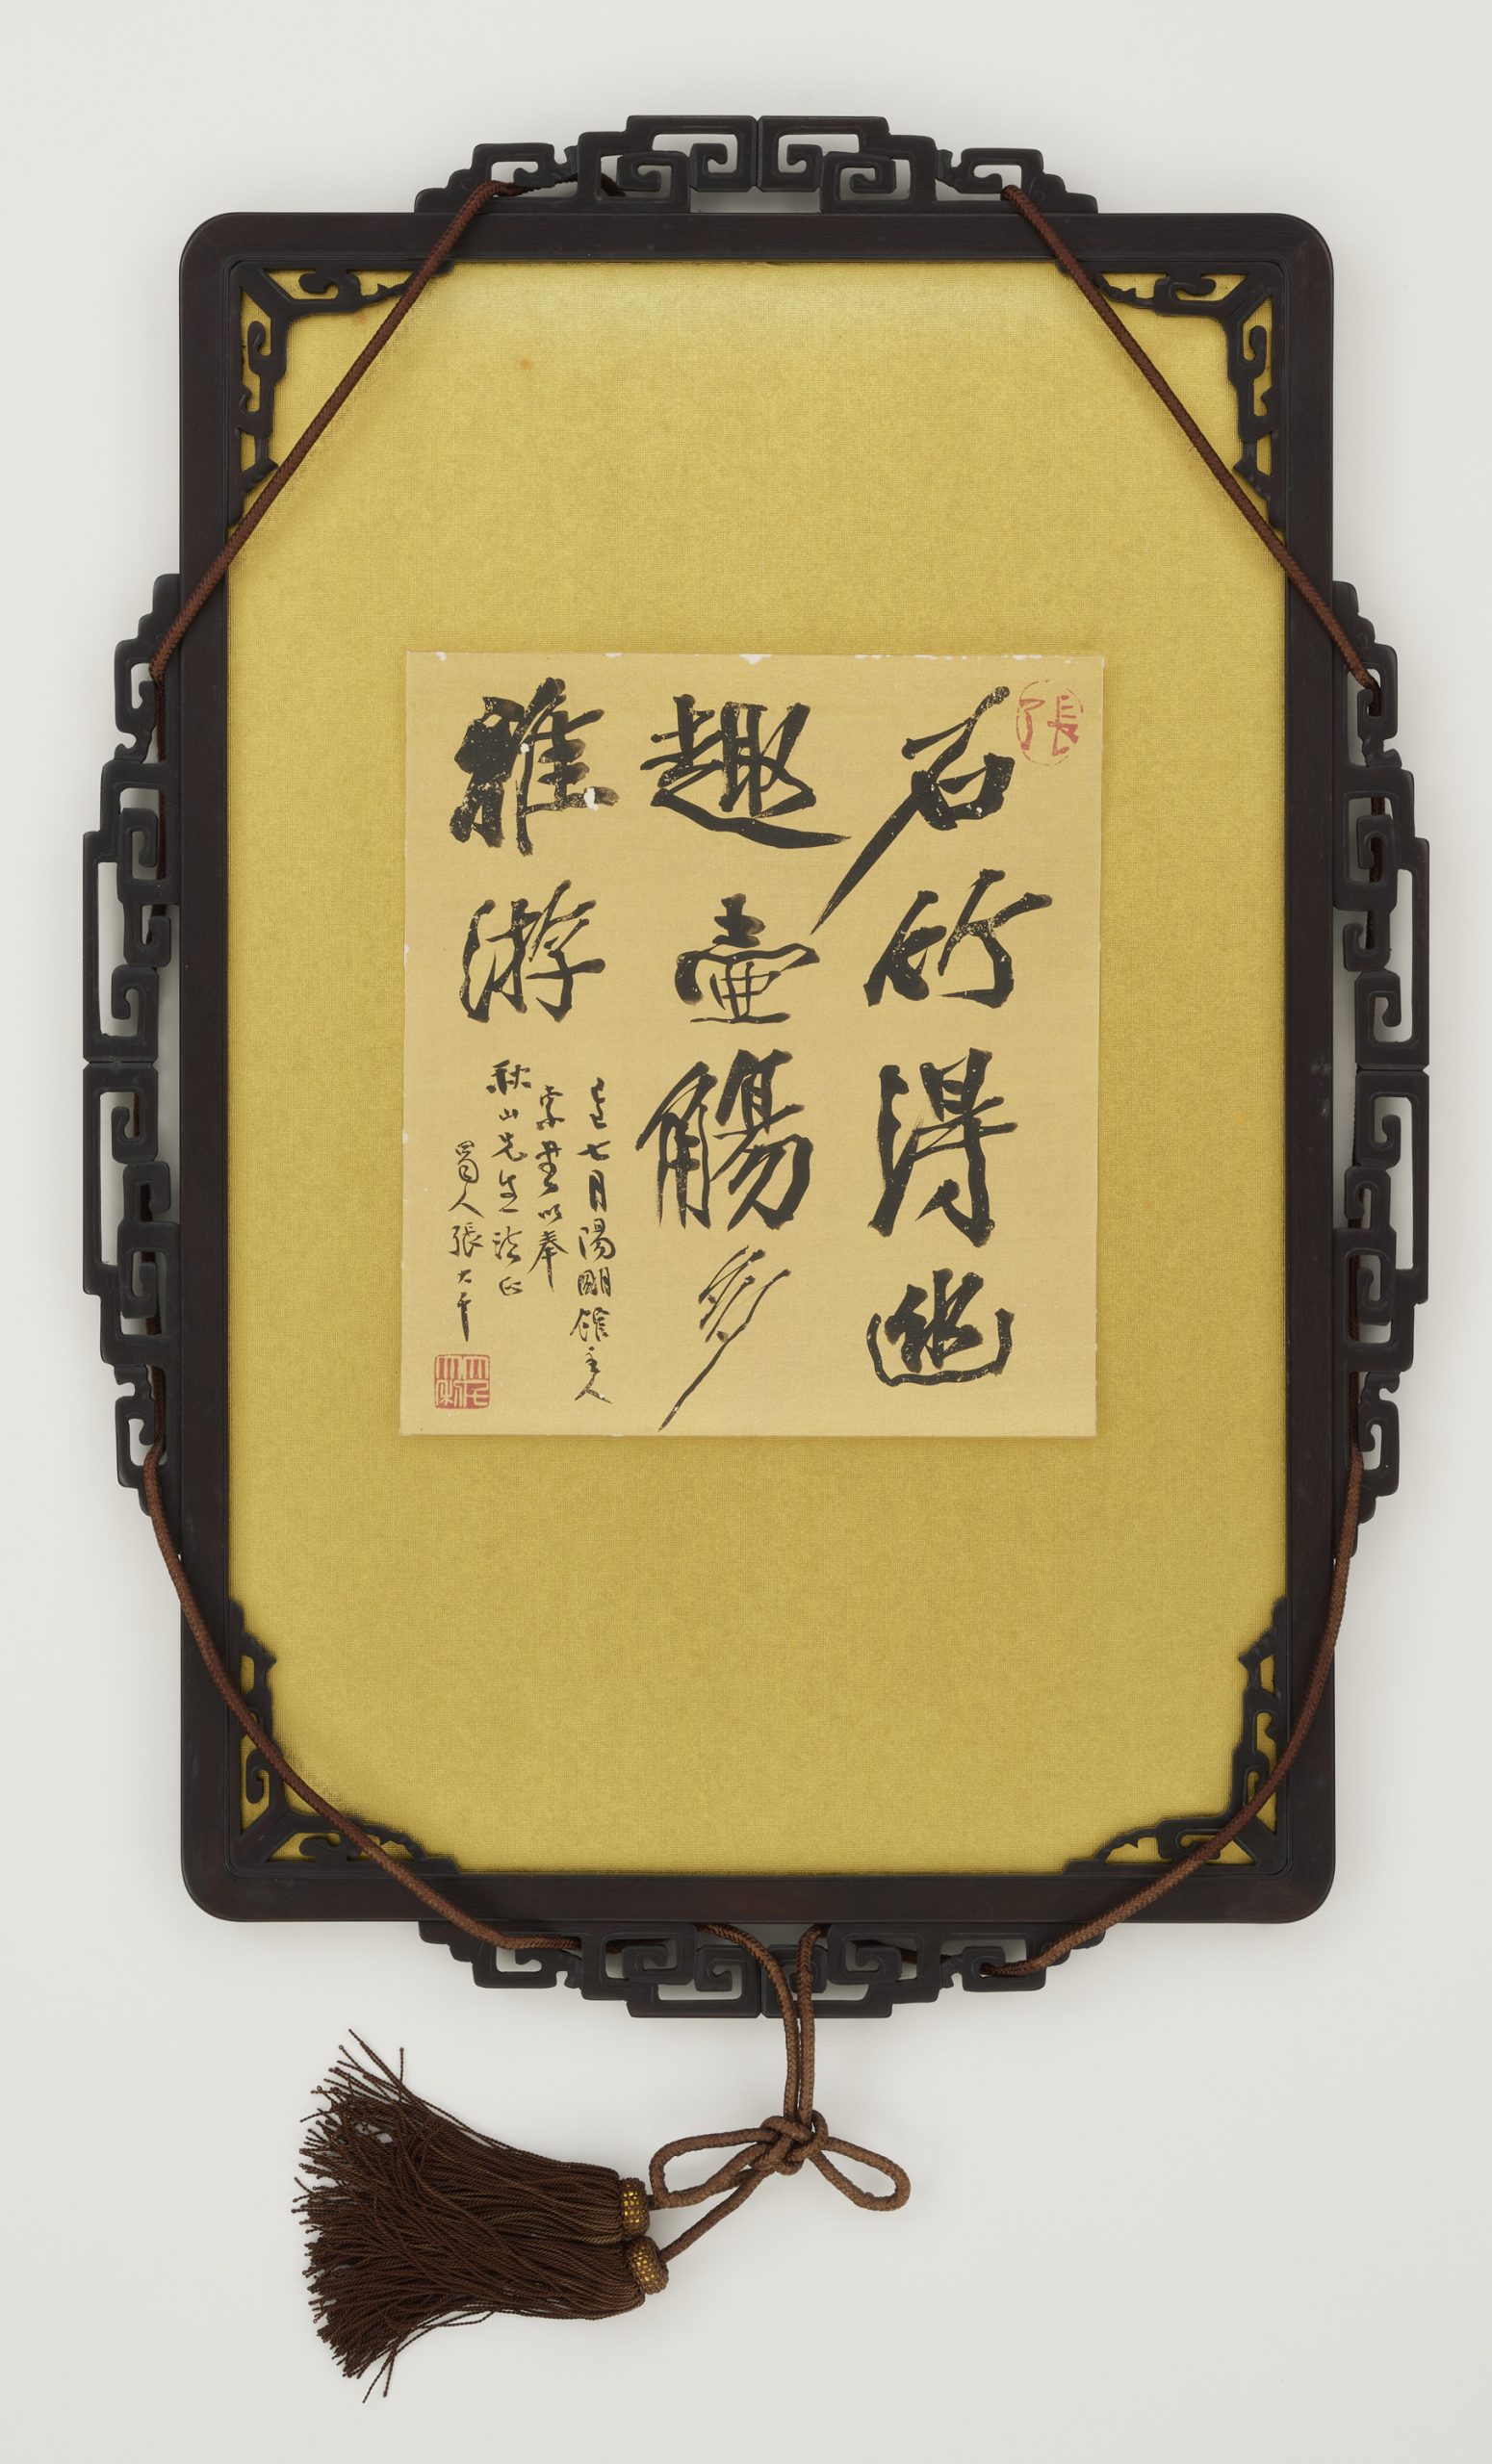 石竹得幽
趣壺觴多
雅游
七月陽明館主人
索書以奉
秋山先生法正
蜀人張大千
張